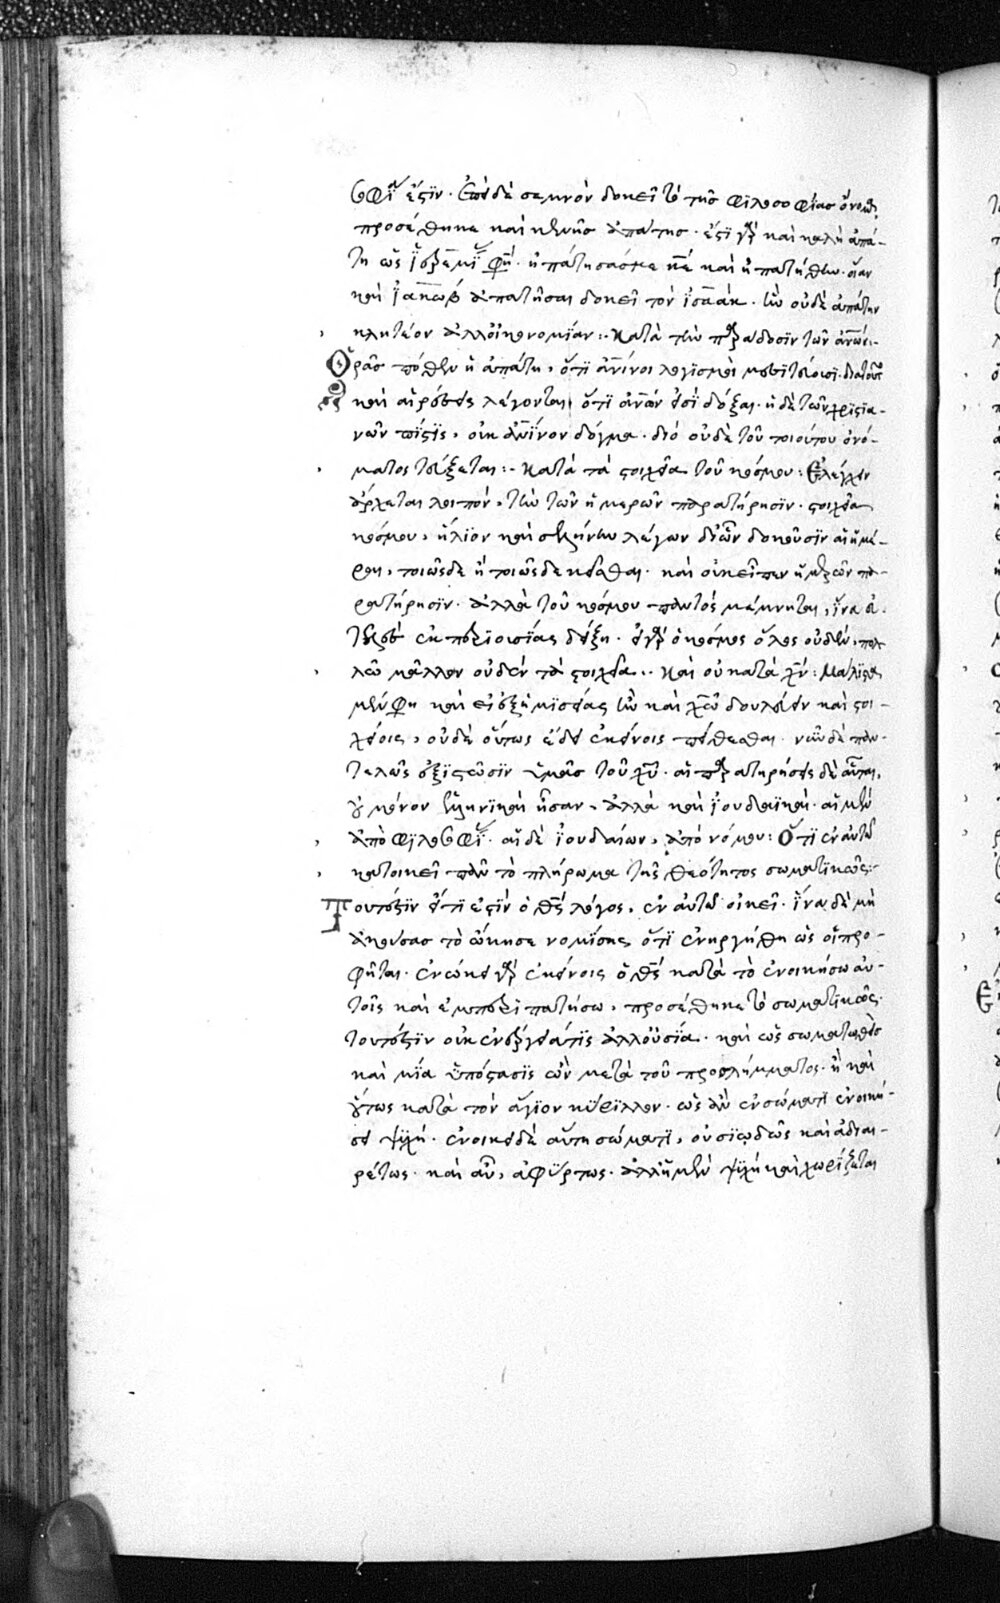 σοφία ἐστίν. Ἐπεὶ δὲ σεμνὸν δοκεῖ τὸ τῆς φιλοσοφίας ὄνομα,
προσέθηκε καὶ κενῆς ἀπάτης. ἔστι γὰρ καὶ καλὴ ἀπά-
τη ὡς Ἱερεμίας φησίν. ἠπάτησάς με κε καὶ ἠπατήθην. οἵαν
καὶ Ἰακὼβ ἀπατῆσαι δοκεῖ τὸν ἰσαάκ. ἣν οὐδὲ ἀπάτην
κλητέον ἀλλ' οἰκονομίαν:- Κατὰ τὴν παράδοσιν τῶν ἀνων:-
Ὁρᾶς πόθεν ἡ ἀπάτη, ὅτι ἀνινοι λογισμοὶ
καὶ αἱρέσεις λέγονται ὅτι ἀνων εἰσὶ δόξαι. ἡ δὲ τῶν χριστια-
νῶν πίστις, οὐκ ἀνινον δόγμα. διὸ οὐδὲ τοῦ τοιούτου ὀνό-
ματος τεύξεται:- Κατὰ τὰ στοιχεῖα τοῦ κόσμου: Ἐλέγχειν
ἄρχεται λοιπὸν, τὴν τῶν ἡμερῶν παρατήρησιν. στοιχεῖα
κόσμου, ἥλιον καὶ σελήνην λέγων δι' ὧν δοκοῦσιν αἱ ἡμέ-
ραι, τοιῶσδε ἢ τοιῶσδε κεῖσθαι. καὶ οὐκ εἶπεν ἡμερῶν πα-
ρατήρησιν. ἀλλὰ τοῦ κόσμου παντὸς μέμνηται, ἵνα
ἐκ περιουσίας δείξῃ. εἰ γὰρ ὁ κόσμος ὅλος οὐδὲν, πολ-
λῶ μᾶλλον οὐδὲν τὰ στοιχεῖα.. Καὶ οὐ κατὰ χν: Μάλιστα
μὲν φησι καὶ εἰ ἐξ ἡμισείας ἦν καὶ χω δουλεύειν καὶ στοι-
χείοις, οὐδὲ οὕτως ἔδει ἐκείνοις πείθεσθαι. νῦν δὲ παν-
τελῶς ἐξιστῶσιν ὑμᾶς τοῦ χυ. αἱ παρατηρήσεις δὲ αὗται,
οὐ μόνον ἑλληνικαὶ ἦσαν, ἀλλὰ καὶ ἰουδαϊκαὶ. αἱ μὲν
ἀπὸ φιλοσοφίας. αἱ δὲ ἰουδαίων, ἀπὸ νόμου: Ὅτι ἐν αὐτῶ
κατοικεῖ πᾶν τὸ πλήρωμα τῆς θεότητος σωματικῶς:-
Τουτέστιν εἴ τι ἐστὶν ὁ θς λόγος, ἐν αὐτῶ οἰκεῖ. ἵνα δὲ μὴ
ἀκούσας τὸ ὤκησε νομίσῃς ὅτι ἐνηργήθη ὡς οἱ προ-
φῆται. ἐνώκει γὰρ ἐκείνοις ὁ θς κατὰ τὸ ἐνοικήσω αὐ-
τοῖς καὶ ἐμπεριπατήσω, προσέθηκε τὸ σωματικῶς.
τουτέστιν οὐκ ἐνέργειά τις ἀλλ' οὐσία. καὶ ὡς σωματωθεὶς
καὶ μία ὑπόστασις ὢν μετὰ τοῦ προσλήμματος. ἢ καὶ
οὕτως κατὰ τὸν ἅγιον κύριλλον. ὡς ἂν ἐν σώματι ἐνοική-
σῃ ψυχή. ἐνοικεῖ δὲ αὕτη σώματι, οὐσιωδῶς καὶ ἀδιαι-
ρέτως. καὶ αὖ, ἀφύρτως. ἀλλ' ἡ μὲν ψυχὴ καὶ χωρίζεται